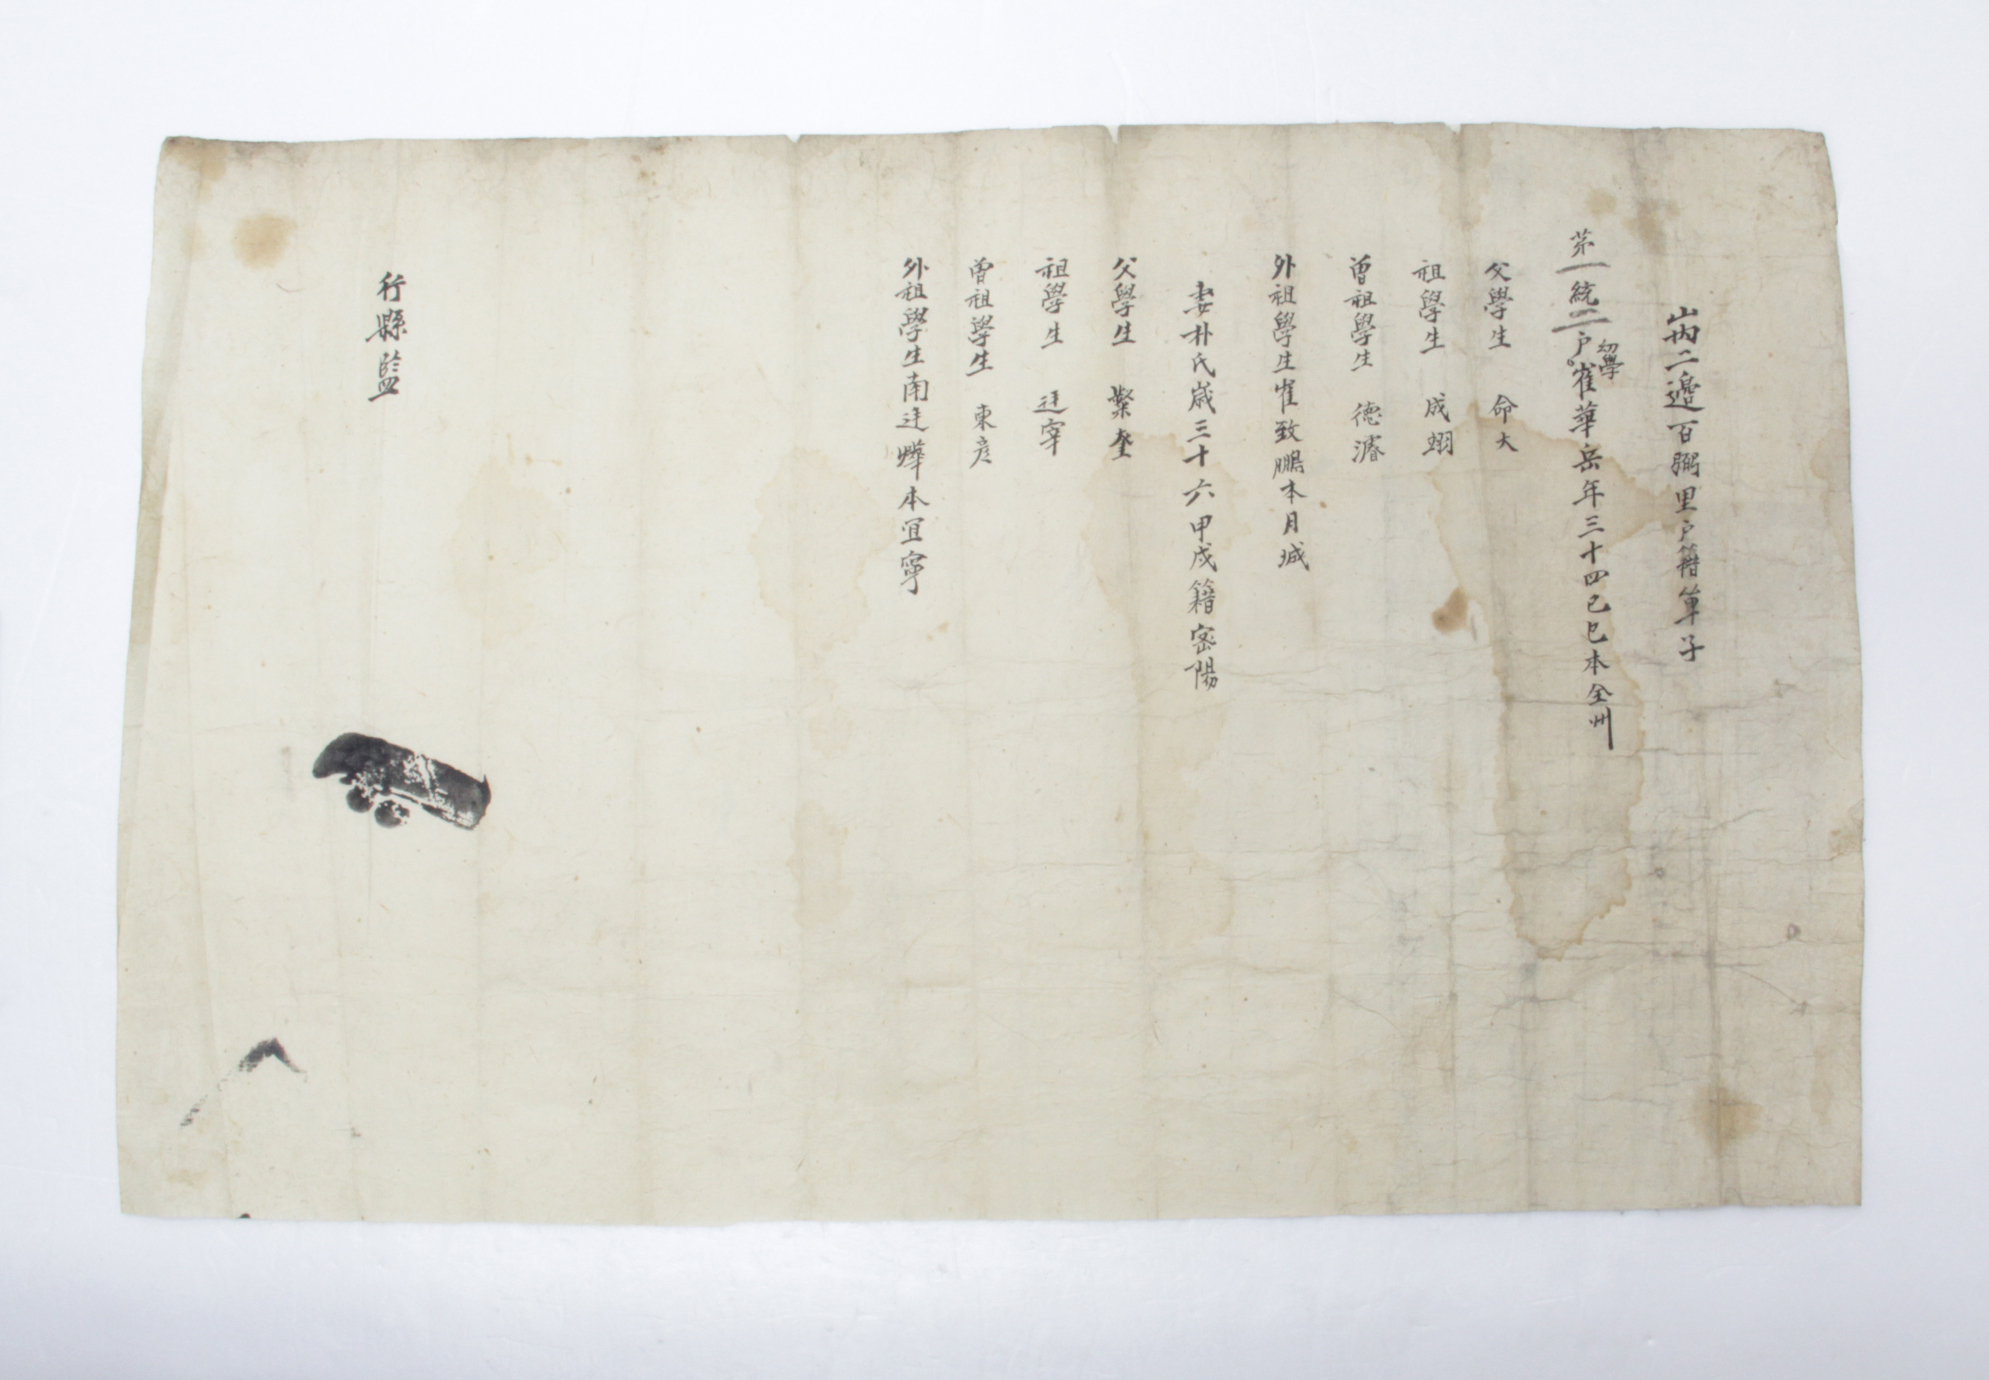 山內二邉百弼里戶籍單子
第一統二戶幼學崔華岳年三十四己巳本全州
父學生 命大
祖學生 成翊
曾祖學生 德濬
外祖學生崔致鵬本月城
妻朴氏歲三十六甲戌籍密陽
父學生 奎
祖學生 廷宰
曾祖學生 東彦
外祖學生南廷燁本宜寧
行縣監